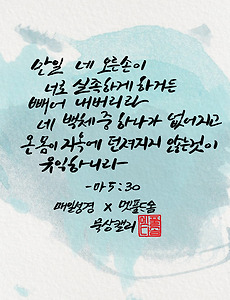 만일 네 오른손이
너로 실족하게 하거든
빼어 내버리라
네 백체 중 하나가 없어지고
온 몸이 지옥에 던져지지 않는것이
유익하니라
-마5:30
매일성경 x 멧풀드솜
묵상캘리